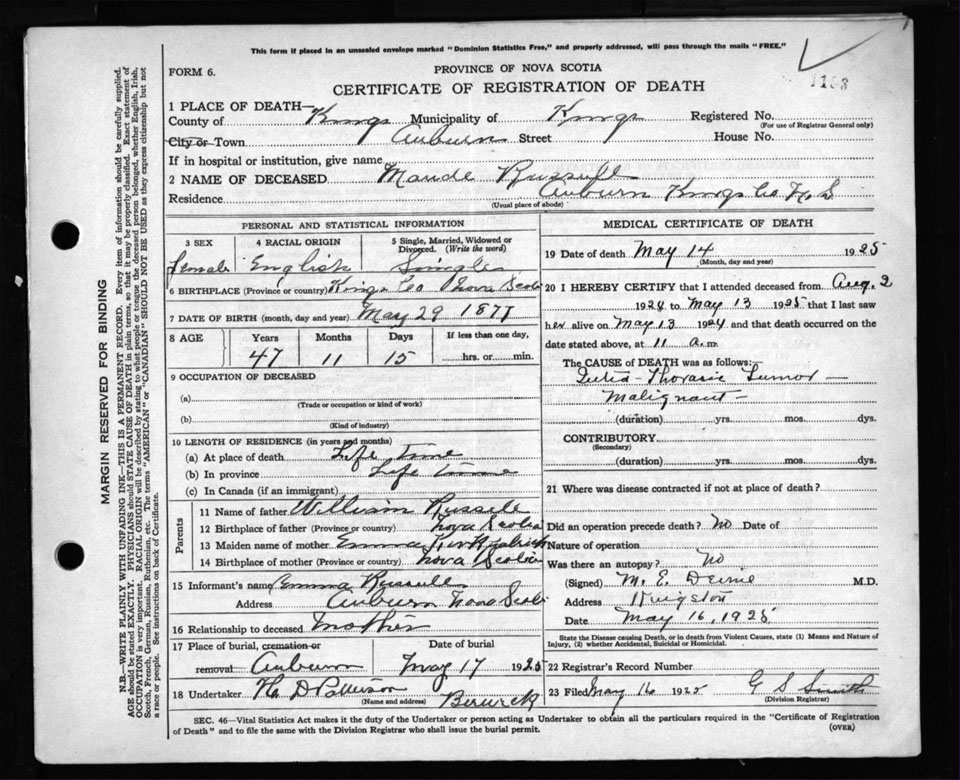 This form if placed in an unsealed envelope marked "Dominion Statistics Free," and properly addressed, will pass through the mails "FREE."
FORM 6.
PROVINCE OF NOVA SCOTIA
CERTIFICATE OF REGISTRATION OF DEATH
1 PLACE OF DEATH—
County of Kings Municipality of Kings Registered No.
(For use of Registrar General only)
City or Town Auburn Street House No.
If in hospital or institution, give name
2 NAME OF DECEASED Maude Russell
Residence Auburn Kings Co N.S
(Usual place of abode)
PERSONAL AND STATISTICAL INFORMATION
3 SEX 4 RACIAL ORIGIN 5 Single, Married, Widowed or Divorced. (Write the word)
Female English Single
6 BIRTHPLACE (Province or country) Kings Co Nova Scotia
7 DATE OF BIRTH (month, day and year) May 29 1877
8 AGE Years Months Days If less than one day,
47 11 15 hrs. or min.
9 OCCUPATION OF DECEASED
(a)
(Trade or occupation or kind of work)
(b)
(Kind of industry)
10 LENGTH OF RESIDENCE (in years and months)
(a) At place of death Life time
(b) In province Life time
(c) In Canada (if an immigrant)
Parents
11 Name of father William Russell
12 Birthplace of father (Province or country) Nova Scotia
13 Maiden name of mother Emma Kirkpatrick
14 Birthplace of mother (Province or country) Nova Scotia
15 Informant's name Emma Russell
Address Auburn Nova Scotia
16 Relationship to deceased Mother
17 Place of burial, cremation or Date of burial
removal Auburn May 17 1925
18 Undertaker Patterson
(Name and address) Berwick
MEDICAL CERTIFICATE OF DEATH
19 Date of death May 14 1925
(Month, day and year)
20 I HEREBY CERTIFY that I attended deceased from Aug. 2
1924 to May 13 1925 that I last saw
her alive on May 13 1924 and that death occurred on
date stated above, at 11 a.m
The CAUSE of DEATH was as follows:—
Intra-Thoracic Tumor
Malignant—
(duration) yrs. mos. dys.
CONTRIBUTORY
(Secondary)
(duration) yrs. mos. dys.
21 Where was disease contracted if not at place of death?
Did an operation precede death? No Date of
Nature of operation
Was there an autopsy? No
(Signed) M. E. M.D.
Address Kingston
Date May 16, 1925
State the Disease causing Death, or in death from Violent Causes, state (1) Means and Nature of
Injury, (2) whether Accidental, Suicidal or Homicidal.
22 Registrar's Record Number
23 Filed May 16 1925 G S Smith
(Division Registrar)
SEC. 46—Vital Statistics Act makes it the duty of the Undertaker or person acting as Undertaker to obtain all the particulars required in the "Certificate of Registration
of Death" and to file the same with the Division Registrar who shall issue the burial permit. (OVER)
MARGIN RESERVED FOR BINDING
N.B.—WRITE PLAINLY WITH UNFADING INK—THIS IS A PERMANENT RECORD. Every item of information should be carefully supplied.
AGE should be stated EXACTLY. PHYSICIANS should STATE CAUSE OF DEATH in plain terms, so that it may be properly classified. Exact statement of
OCCUPATION is very important. RACIAL ORIGIN will be described by stating to what people or tongue the deceased person belonged, whether English, Irish,
Scotch, French, German, Russian, Ruthenian, etc. The terms "AMERICAN" or "CANADIAN" SHOULD NOT BE USED as they express citizenship but not
a race or people. See instructions on back of Certificate.